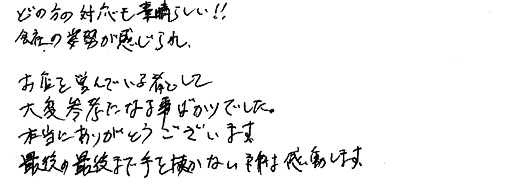 どの方の対応も素晴らしい!!
会社の姿勢が感じられ、
お店を営んでいる者として
大変参考になる事ばかりでした。
本当にありがとうございます
最後の最後まで手を抜かない 感動します